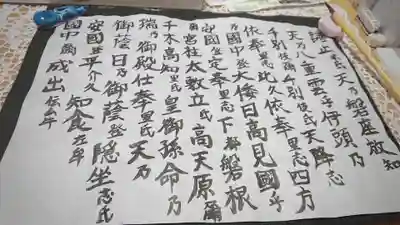 語止女氏天乃磐座放知
天乃八重雲乎伊頭乃
千別伎爾千別伎氏天降志
依奉里志此久依奉里志四方
乃國中登大倭日高見國乎
安國登定奉里志下都磐根
爾宮柱太敷立氏高天原爾
千木高知里氏皇御孫命乃
瑞乃御殿仕奉里氏天乃
御蔭日乃御蔭登隠坐志氏
安國登平介久知食左牟
國中爾成出伝牟